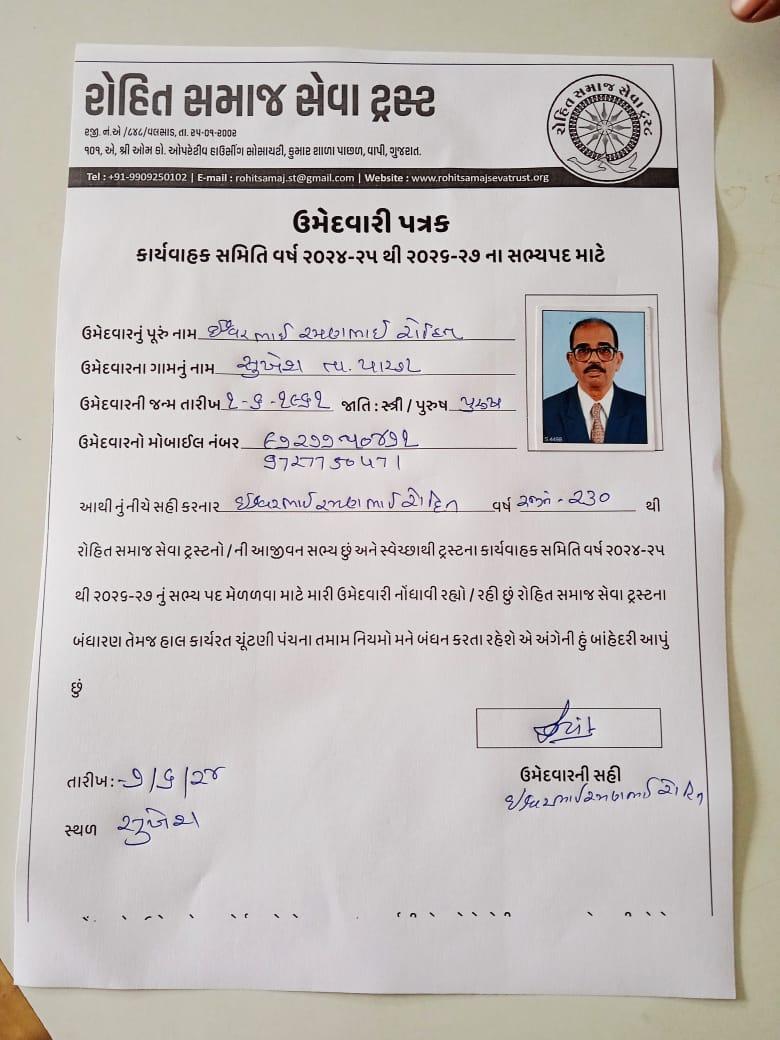 રોહિત સમાજ સેવા ટ્રસ્ટ
રજી. નં.એ /૮૪૮/વલસાડ, તા. ૨૫-૦૧-૨૦૦૨
૧૦૧, એ, શ્રી ઓમ કો. ઓપરેટીવ હાઉસીંગ સોસાયટી, કુમાર શાળા પાછળ, વાપી, ગુજરાત.
રોહિત સમાજ સેવા ટ્રસ્ટ
Tel : +91-9909250102 | E-mail : rohitsamaj.st@gmail.com | Website : www.rohitsamajsevatrust.org
ઉમેદવારી પત્રક
કાર્યવાહક સમિતિ વર્ષ ૨૦૨૪-૨૫ થી ૨૦૨૬-૨૭ ના સભ્યપદ માટે
ઉમેદવારનું પૂરું નામ ઈશ્વરભાઈ રમણભાઈ રોહિત
ઉમેદવારના ગામનું નામ સુખેશ તા. પારડી
ઉમેદવારની જન્મ તારીખ ૧-૬-૧૯૬૧ જાતિ : સ્ત્રી / પુરુષ પુરુષ
ઉમેદવારનો મોબાઈલ નંબર
9727730471
S.4498
આથી નું નીચે સહી કરનાર ઈશ્વરભાઈ રમણભાઈ રોહિત વર્ષ - 230 થી
રોહિત સમાજ સેવા ટ્રસ્ટનો / ની આજીવન સભ્ય છું અને સ્વેચ્છાથી ટ્રસ્ટના કાર્યવાહક સમિતિ વર્ષ ૨૦૨૪-૨૫
થી ૨૦૨૬-૨૭ નું સભ્ય પદ મેળળવા માટે મારી ઉમેદવારી નોંધાવી રહ્યો / રહી છું રોહિત સમાજ સેવા ટ્રસ્ટના
બંધારણ તેમજ હાલ કાર્યરત ચૂંટણી પંચના તમામ નિયમો મને બંધન કરતા રહેશે એ અંગેની હું બાંહેદરી આપું
છું
તારીખ :- ૭/૬/૨૪
ઉમેદવારની સહી
ઈશ્વરભાઈ રમણભાઈ રોહિત
સ્થળ સુખેશ